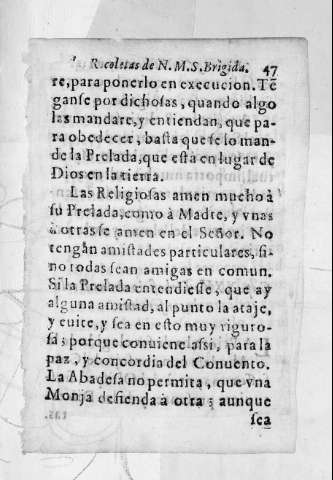 Recoletas de N. M. S. Brigida. 47
re, para ponerlo en execucion. Tẽ
ganse por dichosas, quando algo
las mandare, y entiendan, que pa-
ra obedecer, basta que se lo man-
de la Prelada, que està en lugar de
Dios en la tierra.
Las Religiosas amen mucho à
su Prelada, como à Madre, y vnas
à otras se amen en el Señor. No
tengãn amistades particulares, si-
no todas sean amigas en comun.
Si la Prelada entendiesse, que ay
alguna amistad, al punto la ataje,
y euite, y sea en esto muy riguro-
sa; porque conuiene assi, para la
paz, y concordia del Conuento.
La Abadesa no permita, que vna
Monja defienda à otra; aunque
sea